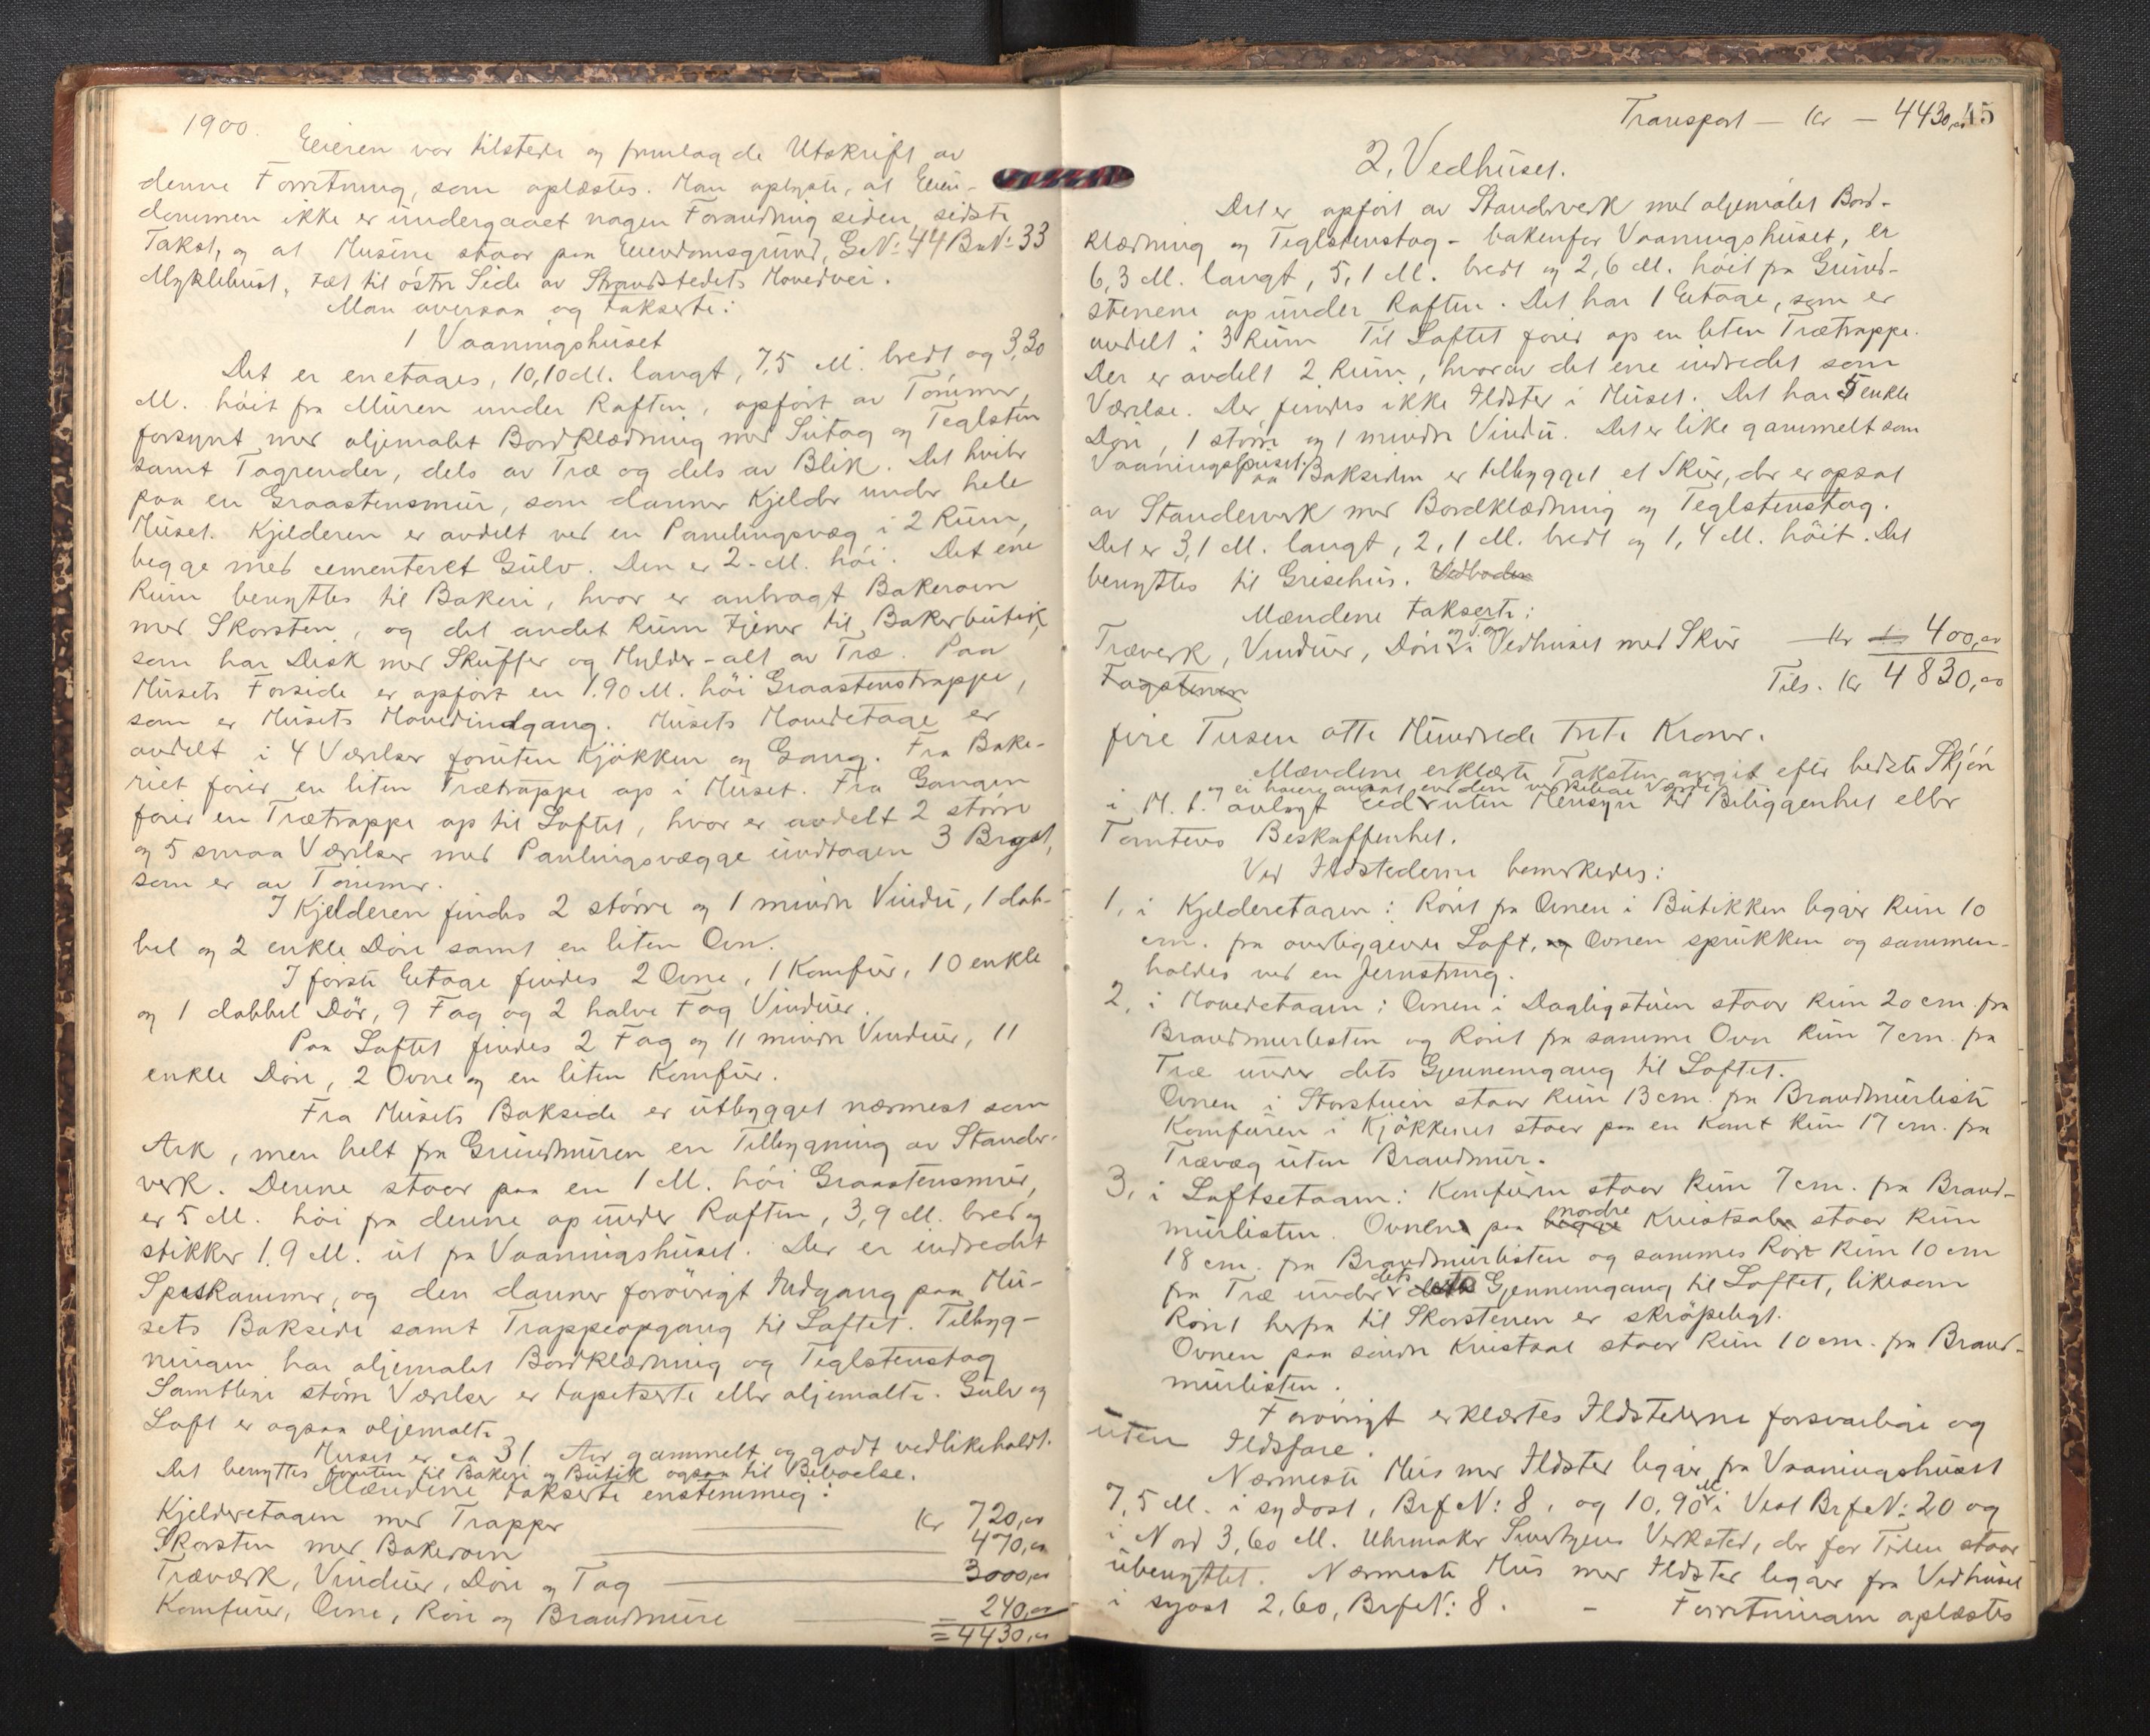 1900.
Eieren var tilstede og fremlagde Utskrift av
denne Forretning, som oplæstes. Man oplyste, at Eien-
dommen ikke er undergaaet nogen Forandring siden sidste
Takst, og at Husene staar paa Eiendomsgrund, G.No: 44 B.No: 33
Myklebust, tæt til østre Side av Strandstedets Hovedvei.
Man oversaa og takserte:
1 Vaaningshuset
Det er enetages, 10,10 M. langt, 7,5 M. bredt og 3,30
M. høit fra Muren under Raften, opført av Tømmer,
forsynt med oljemalet Bordklædning med Sutag og Teglsten
samt Tagrender, dels av Træ og dels av Blik. Det hviler
paa en Graastensmur, som danner Kjelder under hele
Huset. Kjelderen er avdelt ved en Panelingsvæg i 2 Rum,
begge med cementeret Gulv. Den er 2 M. høi. Det ene
Rum benyttes til Bakeri, hvor er anbragt Bakerovn
med Skorsten, og det andet Rum tjener til Bakerbutik,
som har Disk med Skuffer og Hylder - alt av Træ. Paa
Husets Forside er opført en 1.90 M. høi Graastenstrappe,
som er Husets Hovedindgang. Husets Hovedetage er
avdelt i 4 Værelser foruten Kjøkken og Gang. Fra Bake-
riet fører en liten Trætrappe op i Huset. Fra Gangen
fører en Trætrappe op til Loftet, hvor er avdelt 2 større
og 5 smaa Værelser med Panelingsvægge undtagen 3 Bryst,
som er av Tømmer.
I Kjelderen findes 2 større og 1 mindre Vindu, 1 dob-
bel og 2 enkle Døre samt en liten Ovn.
I første Etage findes 2 Ovne, 1 Komfur, 10 enkle
og 1 dobbel Dør, 9 Fag og 2 halve Fag Vinduer.
Paa Loftet findes 2 Fag og 11 mindre Vinduer, 11
enkle Døre, 2 Ovne og en liten Komfur.
Fra Husets Bakside er utbygget nærmest som
Ark, men helt fra Grundmuren en Tilbygning av Stander-
verk. Denne staar paa en 1 M. høi Graastensmur,
er 5 M. høi fra denne op under Raften, 3,9 M. bred og
stikker 1.9 M. ut fra Vaaningshuset. Der er indredet
Spiskammer, og den danner forøvrigt Indgang paa Hu-
sets Bakside samt Trappeopgang til Loftet. Tilbyg-
ningen har oljemalet Bordklædning og Teglstenstag
Samtlige større Værelser er tapetserte eller oljemalte. Gulv og
Loft er ogsaa oljemalte
Huset er ca 31 Aar gammelt og godt vedlikeholdt.
Det benyttes foruten til Bakeri og Butik ogsaa til Beboelse.
Mændene takserte enstemmig:
Kjelderetagen med Trapper — Kr 720,00
Skorsten med Bakerovn — 470,00
Træværk, Vinduer, Døre og Tag — 3000,00
Komfurer, Ovne, Rør og Brandmure — 240,00
= 4430,00
Transport — Kr — 4430,00 45
2, Vedhuset.
Det er opført av Standerverk med oljemalet Bord-
klædning og Teglstenstag - bakenfor Vaaningshuset, er
6,3 M. langt, 5,1 M. bredt og 2,6 M. høit fra Grund-
stenene op under Raften. Det har 1 Etage, som er
avdelt i 3 Rum Til Loftet fører op en liten Trætrappe.
Der er avdelt 2 Rum, hvorav det ene indredet som
Værelse. Der findes ikke Ildsted i Huset. Det har 5 enkle
Døre, 1 større og 1 mindre Vindu. Det er like gammelt som
Vaaningshuset. Paa Baksiden er tilbygget et Skur, der er opsat
av Standerverk med Bordklædning og Teglstenstag.
Det er 3,1 M. langt, 2,1 M. bredt og 1,4 M. høit. Det
benyttes til Grisehus. Vedboden
Mændene takserte:
Træverk, Vinduer, Døre og Tag i Vedhuset med Skur — Kr 400,00
Tagstenen Tils. Kr 4830,00
fire Tusen otte Hundrede treti Kroner.
Mændene erklærte Taksten avgit efter bedste Skjøn
og ei høiere ansat end den virkelige Værdi
i H. t. avlagt Eed uten Hensyn til Beliggenhet eller
Tomtens Beskaffenhet.
Ved Ildstederne bemerkedes:
1, i Kjelderetagen: Røret fra Ovnen i Butikken ligger kun 10
cm. fra overliggende Loft, og Ovnen sprukken og sammen-
holdes ved en Jernstreng.
2, i Hovedetagen: Ovnen i Dagligstuen staar kun 20 cm. fra
Brandmurlisten og Røret fra samme Ovn kun 7 cm. fra
Træ under dets Gjennemgang til Loftet.
Ovnen i Storstuen staar kun 13 cm. fra Brandmurliste
Komfuren i Kjøkkenet staar paa en Kant kun 17 cm. fra
Trævæg uten Brandmur.
3, i Loftsetagen: Komfuren staar kun 7 cm. fra Brand-
murlisten. Ovnen paa begge nordre Kvistsal staar kun
18 cm. fra Brandmurlisten og sammes Rør kun 10 cm
fra Træ under dets Gjennemgang til Loftet, likesom
Røret herfra til Skorstenen er skrøpeligt.
Ovnen paa søndre Kvistsal staar kun 10 cm. fra Brand-
murlisten.
Forøvrigt erklærtes Ildstederne forsvarlige og
uten Ildsfare.
Nærmeste Hus med Ildsted ligger fra Vaaningshuset
7,5 M. i sydost, Brf No: 8, og 10,90 M. i Vest Brf No: 20 og
i Nord 3,60 M. Uhrmaker Verksted, der for Tiden staar
ubenyttet. Nærmeste Hus med Ildsted ligger fra Vedhuset
i syost 2,60, Brf No: 8. - Forretningen oplæstes